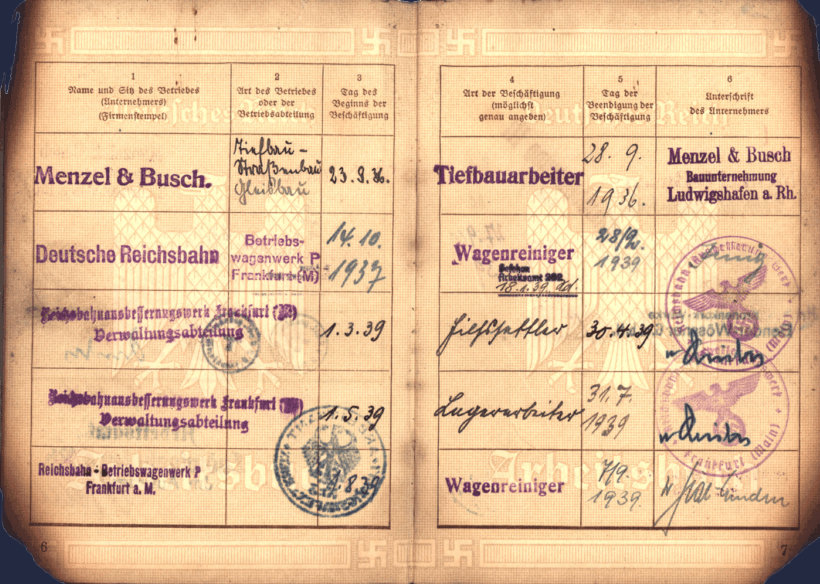 1
Name und Sitz des Betriebes
(Unternehmers)
(Firmenstempel)
2
Art des Betriebes
oder der
Betriebsabteilung
3
Tag des
Beginns der
Beschäftigung
Menzel & Busch.
Tiefbau-
Straßenbau
Gleisbau
23.9.36.
Deutsche Reichsbahn
Betriebs-
wagenwerk P
Frankfurt (M)
14.10.
1937
Reichsbahnausbesserungswerk Frankfurt
Verwaltungsabteilung
1.3.39
Reichsbahnausbesserungswerk Frankfurt
Verwaltungsabteilung
1.5.39
Reichsbahn-Betriebswagenwerk P
Frankfurt a. M.
1.8.39
6
4
Art der Beschäftigung
(möglichst
genau angeben)
5
Tag der
Beendigung der
Beschäftigung
6
Unterschrift
des Unternehmers
Tiefbauarbeiter
28. 9.
1936.
Menzel & Busch
Bauunternehmung
Ludwigshafen a. Rh.
Wagenreiniger
Arbeitsamt
18.1.39.
28/2.
1939
30.4.39
Lagerarbeiter
31.7.
1939
Frankfurt (Main)
Wagenreiniger
7/9.
1939.
7
Deutsches Reich
Arbeitsbuch
Deutsches Reich
Arbeitsbuch